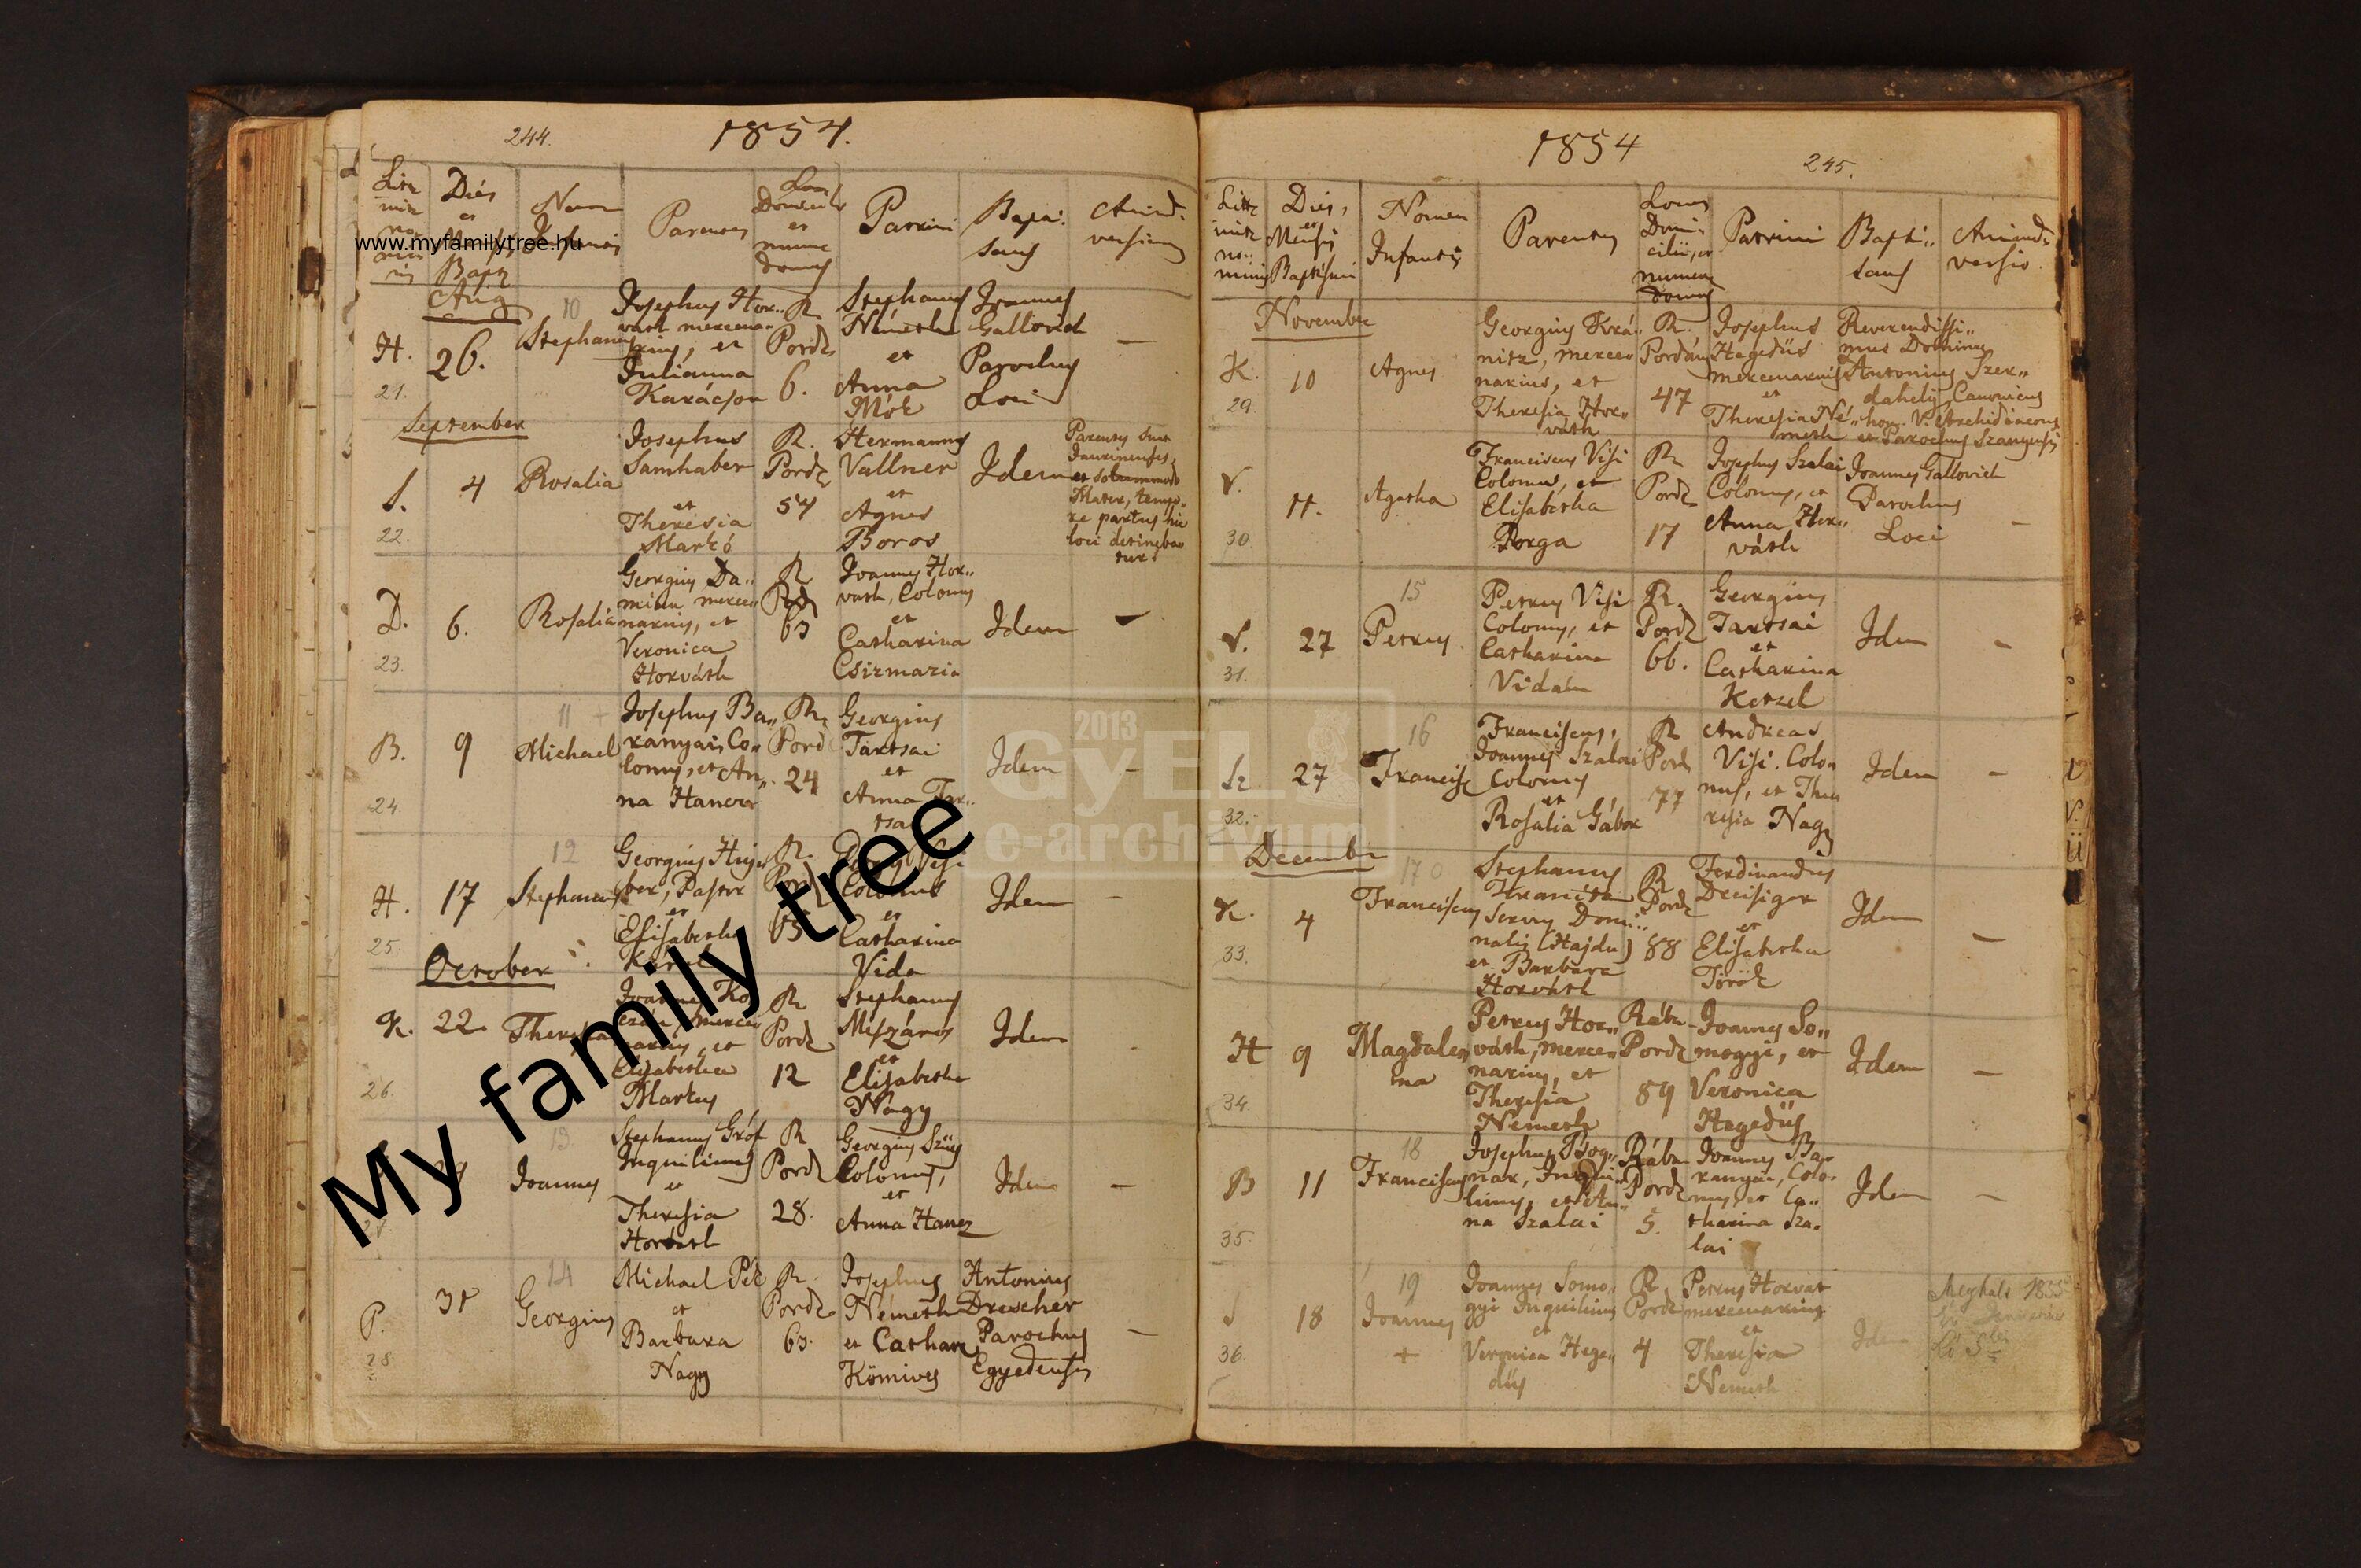 244.
1854.
Dies
et
Parentes
Domicilii
et
numer
domus
Patrini
Bapti:
sans
Animad:
versiones
www.myfamilytree.hu
Aug
H.
21.
26.
10
Stephanus
Josephus Hor..
váth mercena..
rius, et
Julianna
Karácson
R.
Pord
6.
Stephanus
Németh
et
Anna
Mók
Joannes
Gallovich
Parochus
Loci
—
September
S.
22.
4
Rosalia
Josephus
Samhaber
et
Therésia
Markó
R.
Pord
54
Hermannus
Vallner
et
Agnes
Boros
Idem
Parentes sunt
Jaurinenses,
et solummodo
Mater, tempo..
re partus hic
loci detineba..
tur.
D.
23.
6.
Rosalia
Georgius Da..
merce..
narius, et
Veronica
Horváth
R
Pord
63
Joannes Hor..
vath, Colonus
et
Catharina
Csizmazia
Idem
—
B.
24
9
11
Michael
Josephus Ba..
ranyai, Co..
lonus, et An..
na Hancz
R.
Pord
24
Georgius
Tartsai
et
Anna Tar..
tsai
Idem
—
H.
25.
17
12
Stephanus
Georgius
ber, Pastor
et
Elisabetha
R.
Pord
65
Colonus
et
Catharina
Vida
Idem
—
October
K.
26.
22
Theresia
Joannes Ko
et
Elisabetha
Markus
R
Pord
12
Stephanus
Mészáros
et
Elisabetha
Nagy
Idem
27.
29
13
Joannes
Stephanus Gróf
Inquilinus
et
Theresia
Horváth
R
Pord
28.
Georgius Szüs
Colonus,
et
Anna Hancz
Idem
—
P.
28
31
14
Georgius
Michael Pék
et
Barbara
Nagy
R.
Pord
63.
Josephus
Németh
et Cathar.
Kömives
Antonius
Drescher
Parochus
Egyedensis
—
1854
245.
Dies,
et
Mensis
Baptismi
Nomen
Infantis
Parentes
Locus
Domi:
cilii, et
numerus
domus
Patrini
Bapti..
sans
Animad..
versio
November
K.
29.
10
Agnes
Georgius Krá..
nitz, merce..
narius, et
Theresia Hor..
váth
R.
Pordány
47
Josephus
Hegedüs
mercenarius
et
Theresia Né..
meth
Reverendissi..
mus Dominus
Antonius Szer..
dahelyi, Canonicus
hon. V. Archidiaconus
et Parochus Szanyensis
V.
30.
11.
Agatha
Franciscus Visi
Colonus, et
Elisabetha
Porga
R.
Pord
17
Josephus Szalai
Colonus, et
Anna Hor..
váth
Joannes Gallovich
Parochus
Loci
—
V.
31.
27
15
Petrus
Petrus Visi
Colonus, et
Catharina
Vidám
R.
Pord
66.
Georgius
Tartsai
et
Catharina
Ketzel
Idem
—
Sz
32.
27
16
Francisc
Franciscus,
Joannes Szalai
Colonus
et
Rosalia Gábor
R
Pord
77
Andreas
Visi, Colo..
nus, et The
resia Nagy
Idem
—
December
K.
33.
4
17
Franciscus
Stephanus
Kranitz
Servus Domi..
nalis (Hajdu)
et Barbara
Horváth
R
Pord
88
Ferdinandus
Dreisiger
et
Elisabetha
Török
Idem
—
H
34.
9
Magdale
na
Petrus Hor..
váth, merce..
narius, et
Theresia
Nemeth
Rába
Pord
89
Joannes So..
mogyi, et
Veronica
Hegedüs
Idem
—
B
35.
11
18
Franciscus
Josephus Bog..
nar, Inqui..
linus, et An..
na Szalai
Rába
Pord
5.
Joannes Ba..
ranyai, Colo..
nus, et Ca..
tharina Sza..
lai
Idem
—
S
36.
18
19
Joannes
+
Joannes Somo..
gyi Inquilinus
et
Veronica Hege..
düs
R.
Pord
4
Petrus Horvat
mercenarius
et
Theresia
Nemeth
Idem
Meghalt 1855
2013
GyEL
e-archivum
My family tree